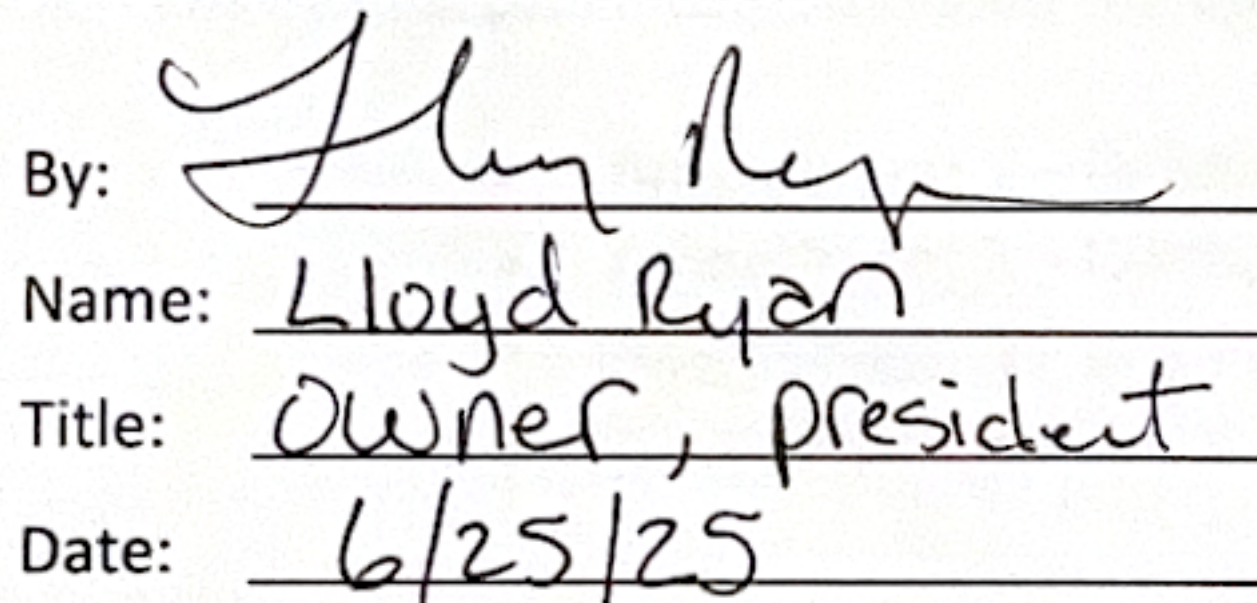 By:
Name: Lloyd Ryan
Title: owner, president
Date: 6/25/25